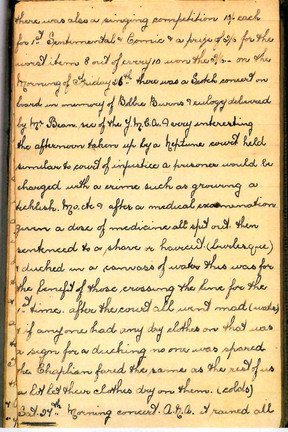 there was also a singing competition 10/- each
for 1st Sentimental & Comic & a prize of 5/- for the
worst item 8 out of every 10 won the 5/- - on the
Morning of Friday 26th there was a Scotch concert on
board in memory of Bobbie Burns & eulogy delivered
by Mr Bean. sec of the Y.M.C.A. & very interesting
the afternoon taken up by a Neptune court held
similar to court of injustice a prisoner would be
charged with a crime such as growing a
ticklish. Mo. & after a medical examenation
given a dose of medicine all spit out. then
sentenced to a shave & haircut (burlesque)
& ducked in a canvass of water this was for
the benefit of those, crossing the line for the
1st time. after the court all went mad (water)
& if anyone had any dry clothes on that was
a sign for a ducking no one was spared
the Chaplian fared the same as the rest of us
a lot let their clothes dry on them. (colds)
Sat. 27th Morning concert. it rained all